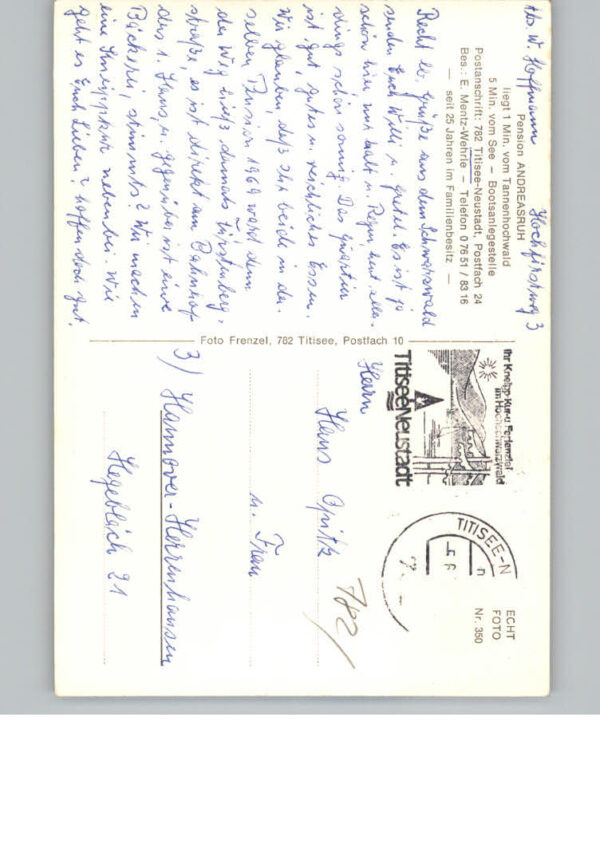 Abs. W. Hoffmann
Hochfirstweg 3
Pension ANDREASRUH
liegt 1 Min. vom Tannenhochwald
5 Min. vom See — Bootsanlegestelle
Postanschrift: 782 Titisee-Neustadt, Postfach 24
Bes.: E. Mentz-Wehrle — Telefon 0 76 51 / 83 16
— seit 25 Jahren im Familienbesitz —
Recht lb. Grüße aus dem Schwarzwald
senden Euch Willi u. Gretel. Es ist ja
schön hier nur kalt u. Regen heut aller-
dings schön sonnig. Das Quartier
ist gut, gutes u. reichliches Essen.
Wir glauben, daß Ihr beide in der
selben Pension 1969 wart denn
der Weg hieß damals Fürstenberg-
straße, es ist direkt am Bahnhof
das 1. Haus, u. gegenüber ist eine
Bäckerei, stimmts? Wir machen
eine Kneippkur nebenbei. Wie
geht es Euch Lieben? hoffen doch gut.
Foto Frenzel, 782 Titisee, Postfach 10
Ihr Kneipp-Kur-u. Ferienziel
im Hochschwarzwald
Titisee Neustadt
TITISEE-N
ECHT
FOTO
Nr. 350
Herrn
Hans Opitz
u. Frau
3) Hannover-Herrenhausen
Hegebläch 21
782/